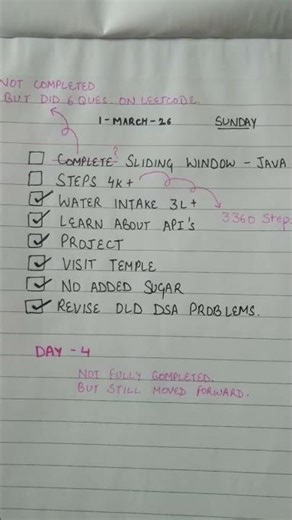 NOT COMPLETED
BUT DID 6 QUES. ON LEETCODE.
1-MARCH-26 SUNDAY
COMPLETE SLIDING WINDOW - JAVA
STEPS 4K+
WATER INTAKE 3L+
3360 Steps
LEARN ABOUT API's
PROJECT
VISIT TEMPLE
NO ADDED SUGAR
REVISE OLD DSA PROBLEMS.
DAY - 4
NOT FULLY COMPLETED.
BUT STILL MOVED FORWARD.